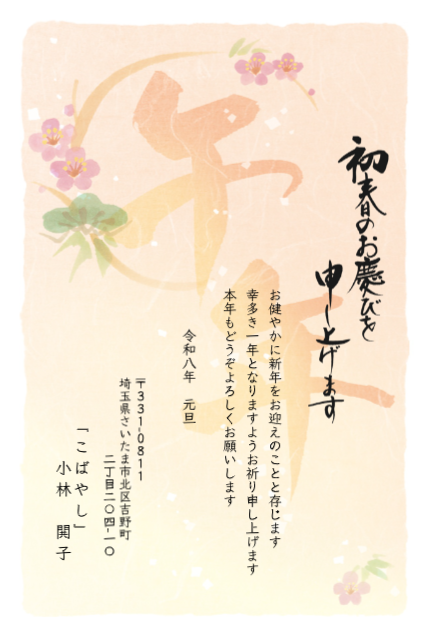 初春のお慶びを
申し上げます
お健やかに新年をお迎えのことと存じます
幸多き一年となりますようお祈り申し上げます
本年もどうぞよろしくお願いします
令和八年　元旦
〒331-0811
埼玉県さいたま市北区吉野町
二丁目二〇四-一〇
「こばやし」
小林　関子
午年